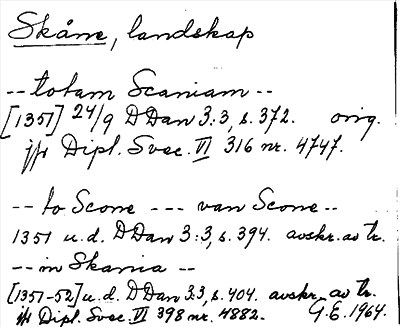 Skåne, landskap
-- totam Scaniam --
[1351] 24/9 D Dan 3:3, s. 372. orig.
jfr Dipl. Svec. VI 316 nr. 4747.
-- to Scone --- van Scone --
1351 u.d. D Dan 3:3, s. 394. avskr. av tr.
-- in Skania --
[1351-52] u.d. D Dan 3:3, s. 404. avskr. av tr.
jfr Dipl. Svec. VI 398 nr. 4882. G.E. 1964.